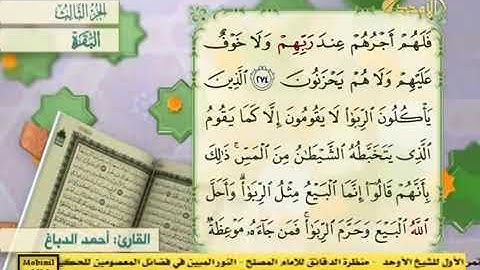 الأوحد
الجزء الثالث
البقرة
فَلَهُمْ أَجْرُهُمْ عِندَ رَبِّهِمْ وَلَا خَوْفٌ
عَلَيْهِمْ وَلَا هُمْ يَحْزَنُونَ ۝٢٧٤ ٱلَّذِينَ
يَأْكُلُونَ ٱلرِّبَوٰا۟ لَا يَقُومُونَ إِلَّا كَمَا يَقُومُ
ٱلَّذِى يَتَخَبَّطُهُ ٱلشَّيْطَٰنُ مِنَ ٱلْمَسِّ ۚ ذَٰلِكَ
بِأَنَّهُمْ قَالُوٓا۟ إِنَّمَا ٱلْبَيْعُ مِثْلُ ٱلرِّبَوٰا۟ ۗ وَأَحَلَّ
ٱللَّهُ ٱلْبَيْعَ وَحَرَّمَ ٱلرِّبَوٰا۟ ۚ فَمَن جَآءَهُۥ مَوْعِظَةٌ
القارئ: أحمد الدباغ
Mobinil
تمر الأول للشيخ الأوحد - منظرة الدقائق للامام المصلح - النور المبين في فضائل المعصومين للحك